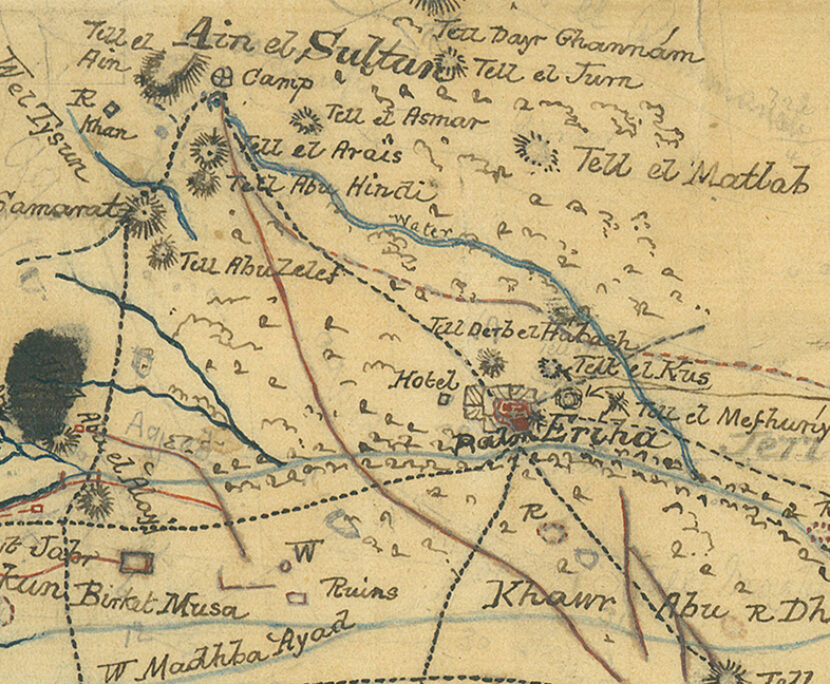 Tell Dayr Ghannám
Tell el
Ain
Ain el Sultan
Tell el Jurn
Camp
W el Tysun
R
Khan
Tell el Asmar
Tell el Araïs
Tell el Matlab
Tell Abu Hindi
Samarat
Water
Tell Abu Zelef
Tell Derb el Habash
Tell el Kus
Hotel
Tell el Mefhuriy
Eriha
Jeri
Abu el Alayj
R
W
Jabr
Birket Musa
Ruins
Khawr Abu R Dh
W Madhba Ayad
Tell